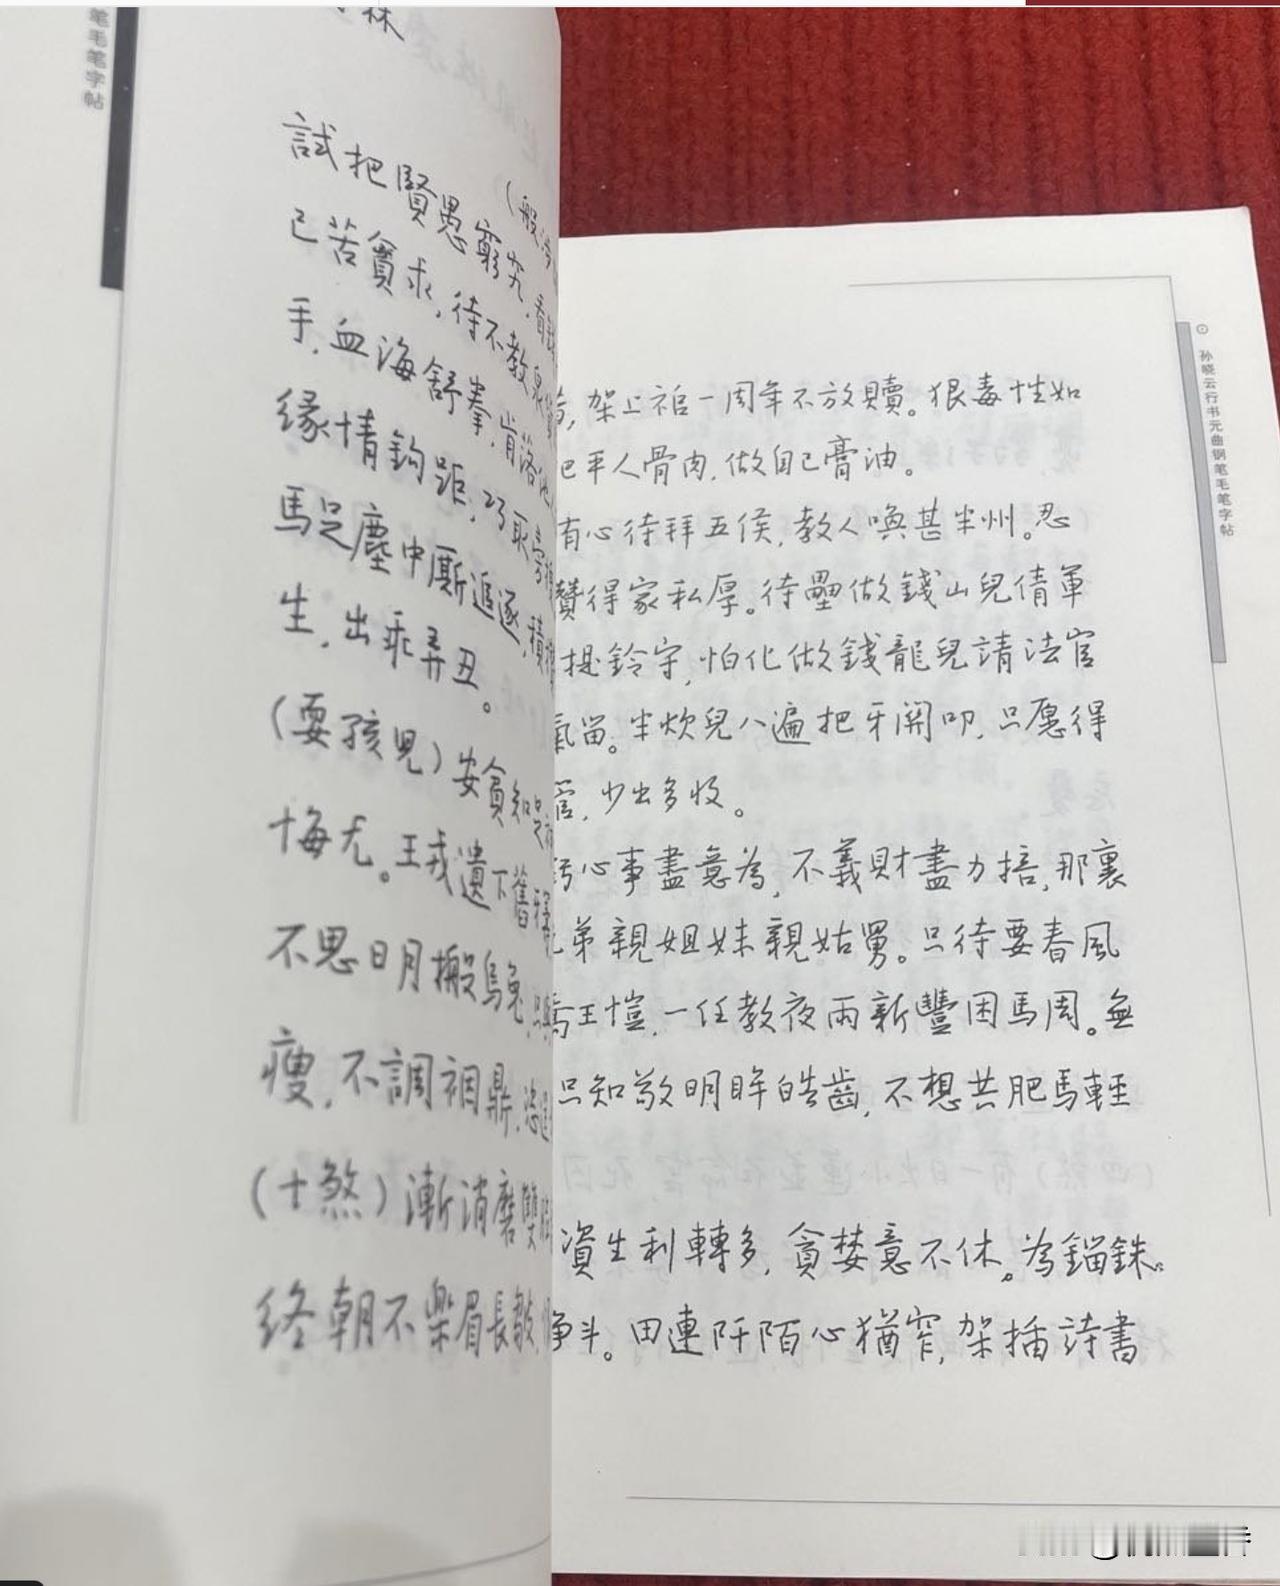 笔毛笔字帖
試把賢愚窮究,看
(般涉
已苦貪求,待不教泉貨
手,血海舒拳,肯落他
緣情鈎距,巧取旁
馬足塵中厮追逐,積
生,出乖弄丑。
(耍孩兒)安貧知足
十悔尤。王戎遺下舊
不思日月搬烏兔,只
瘦,不調裀鼎,恣
(十煞)漸消磨雙
終朝不樂眉長皺,
孙晓云行书元曲钢笔毛笔字帖
,架上祒一周年不放贖。狠毒性如
把平人骨肉,做自己膏油。
有心待拜五侯,教人喚甚半州。忍
攢得家私厚。待壘做錢山兒倩軍
提鈴守,怕化做錢龍兒請法官
氣留。半炊兒八遍把牙關叩,只愿得
官,少出多收。
虧心事盡意為,不義財盡力掊,那裏
弟親姐妹親姑舅。只待要春風
王愷,一任教夜雨新豐困馬周。無
只知敬明眸皓齒,不想共肥馬輕
資生利轉多,貪婪意不休。為錙銖
爭斗。田連阡陌心猶窄,架插詩書